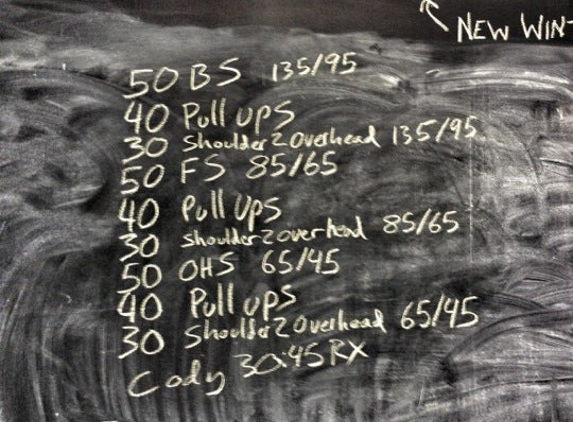 NEW WIN
50 BS 135/95
40 Pull ups
30 Shoulder 2 Overhead 135/95
50 FS 85/65
40 Pull Ups
30 Shoulder 2 overhead 85/65
50 OHS 65/45
40 Pull ups
30 Shoulder 2 Overhead 65/45
Cody 30:45 RX